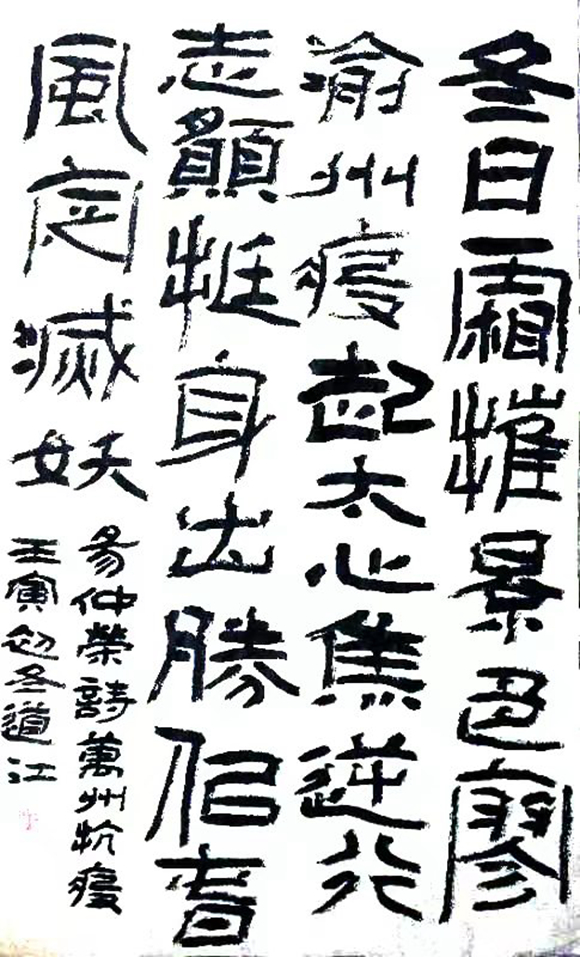 冬日霜摧景色寥
渝州疫起太心焦逆行
志願挺身出勝似春
風定滅妖
易仲榮詩萬州抗疫
壬寅初冬道江